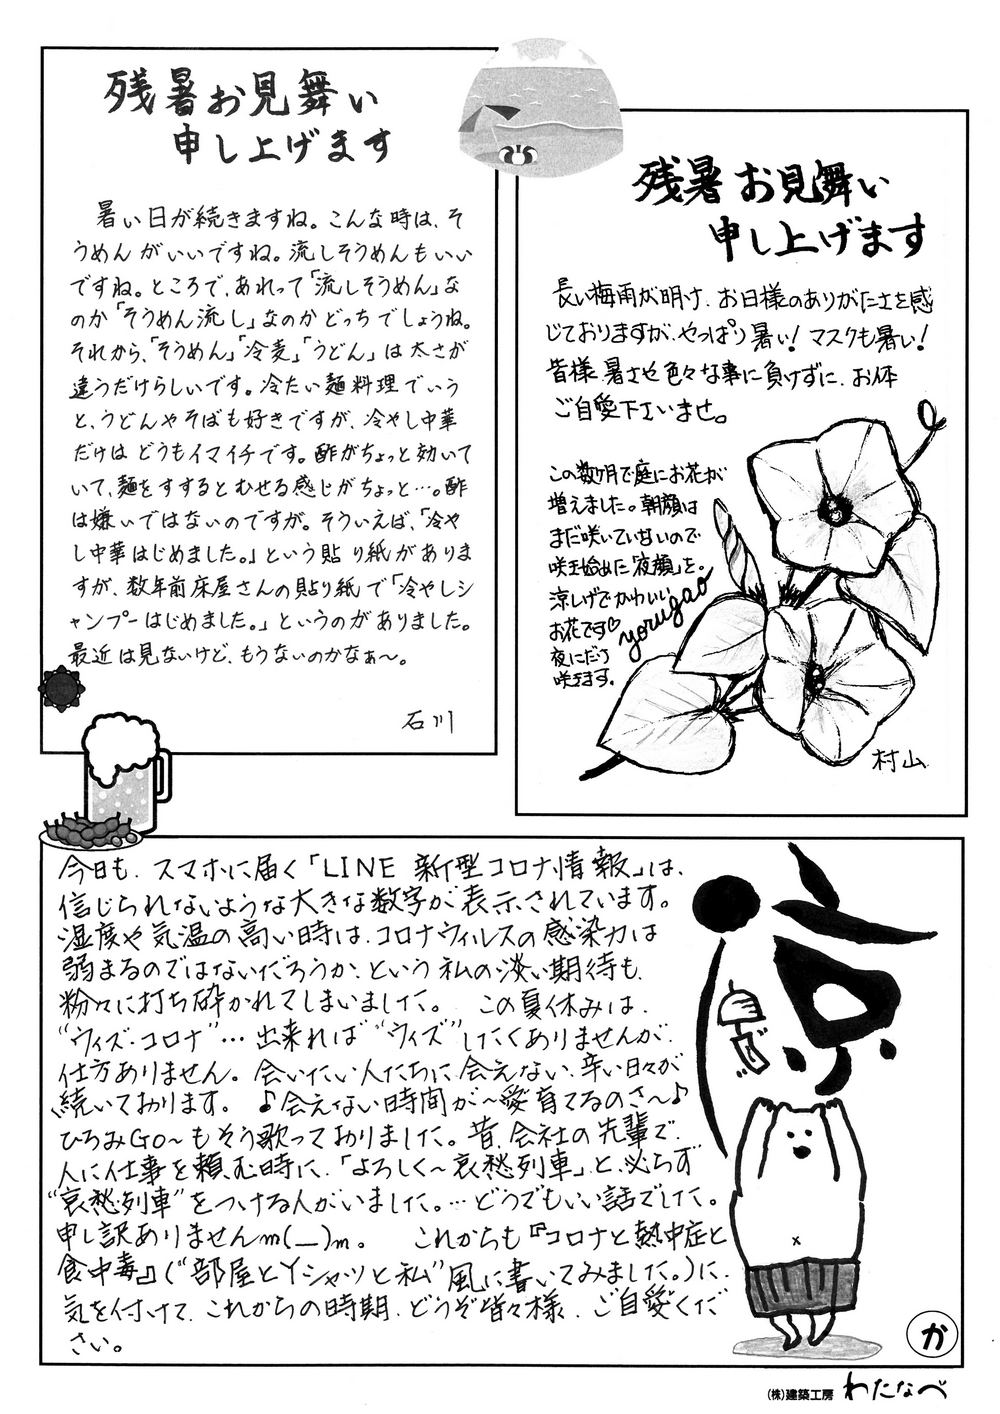 残暑お見舞い
申し上げます
暑い日が続きますね。こんな時は、そ
うめんがいいですね。流しそうめんもいい
ですね。ところで、あれって「流しそうめん」な
のか「そうめん流し」なのかどっちでしょうね。
それから、「そうめん」「冷麦」「うどん」は太さが
違うだけらしいです。冷たい麺料理でいう
と、うどんやそばも好きですが、冷やし中華
だけはどうもイマイチです。酢がちょっと効いて
いて、麺をすするとむせる感じがちょっと…。酢
は嫌いではないのですが。そういえば、「冷や
し中華はじめました。」という貼り紙がありま
すが、数年前床屋さんの貼り紙で「冷やしシ
ャンプーはじめました。」というのがありました。
最近は見ないけど、もうないのかなぁ〜。
石川
残暑お見舞い
申し上げます
長い梅雨が明け、お日様のありがたさを感
じておりますが、やっぱり暑い!マスクも暑い!
皆様、暑さや色々な事に負けずに、お体
ご自愛下さいませ。
この数ヶ月で庭にお花が
増えました。朝顔は
まだ咲いて甘いので
咲き始めた「夜顔」を。
涼しげでかわいい
お花です♡
夜にだけ
咲きます。
yorugao
村山
今日も、スマホに届く「LINE 新型コロナ情報」は、
信じられないような大きな数字が表示されています。
湿度や気温の高い時は、コロナウィルスの感染力は
弱まるのではないだろうか、という私の淡い期待も、
粉々に打ち砕かれてしまいました。 この夏休みは、
“ウィズ・コロナ”…出来れば“ウィズ”したくありませんが、
仕方ありません。会いたい人たちに会えない、辛い日々が
続いております。 ♪会えない時間が〜愛育てるのさ〜♪
ひろみGo〜もそう歌っておりました。昔、会社の先輩で、
人に仕事を頼む時に、「よろしく〜哀愁列車」と、必らず
“哀愁列車”をつける人がいました。…どうでもいい話でした。
申し訳ありませんm(__)m。 これからも『コロナと熱中症と
食中毒』(“部屋とYシャツと私”風に書いてみました。)に、
気を付けて、これからの時期、どうぞ皆々様、ご自愛くだ
さい。
涼
か
(株)建築工房 わたなべ